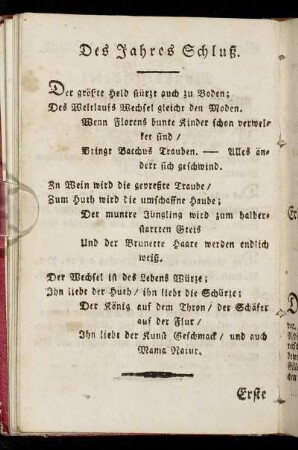 Des Jahres Schluß.
Der größte Held stürzt auch zu Boden;
Des Weltlaufs Wechsel gleicht den Moden.
Wenn Florens bunte Kinder schon verwel-
ket sind/
Bringt Bacchus Trauben. — Alles än-
dert sich geschwind.
Zu Wein wird die gepreßte Traube/
Zum Huth wird die umschaffne Haube;
Der muntre Jüngling wird zum halber-
starrten Greis
Und der Brunette Haare werden endlich
weiß.
Der Wechsel ist des Lebens Würze;
Ihn liebt der Huth/ ihn liebt die Schürze;
Der König auf dem Thron/ der Schäfer
auf der Flur/
Ihn liebt der Kunst Geschmack/ und auch
Mama Natur.
Erste